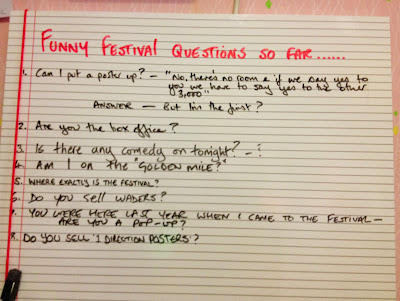 FUNNY FESTIVAL QUESTIONS SO FAR......
1. Can I put a poster up? — "No, there's no room & if we say yes to
you we have to say yes to the other
3,000"
ANSWER — But I'm the first?
2. Are you the box office?
3. Is there any comedy on tonight? - ?
4. AM I ON THE "GOLDEN MILE?"
5. WHERE EXACTLY IS THE FESTIVAL?
6. DO YOU SELL WADERS?
7. YOU WERE HERE LAST YEAR WHEN I CAME TO THE FESTIVAL —
ARE YOU A POP-UP?
8. DO YOU SELL '1 DIRECTION POSTERS'?